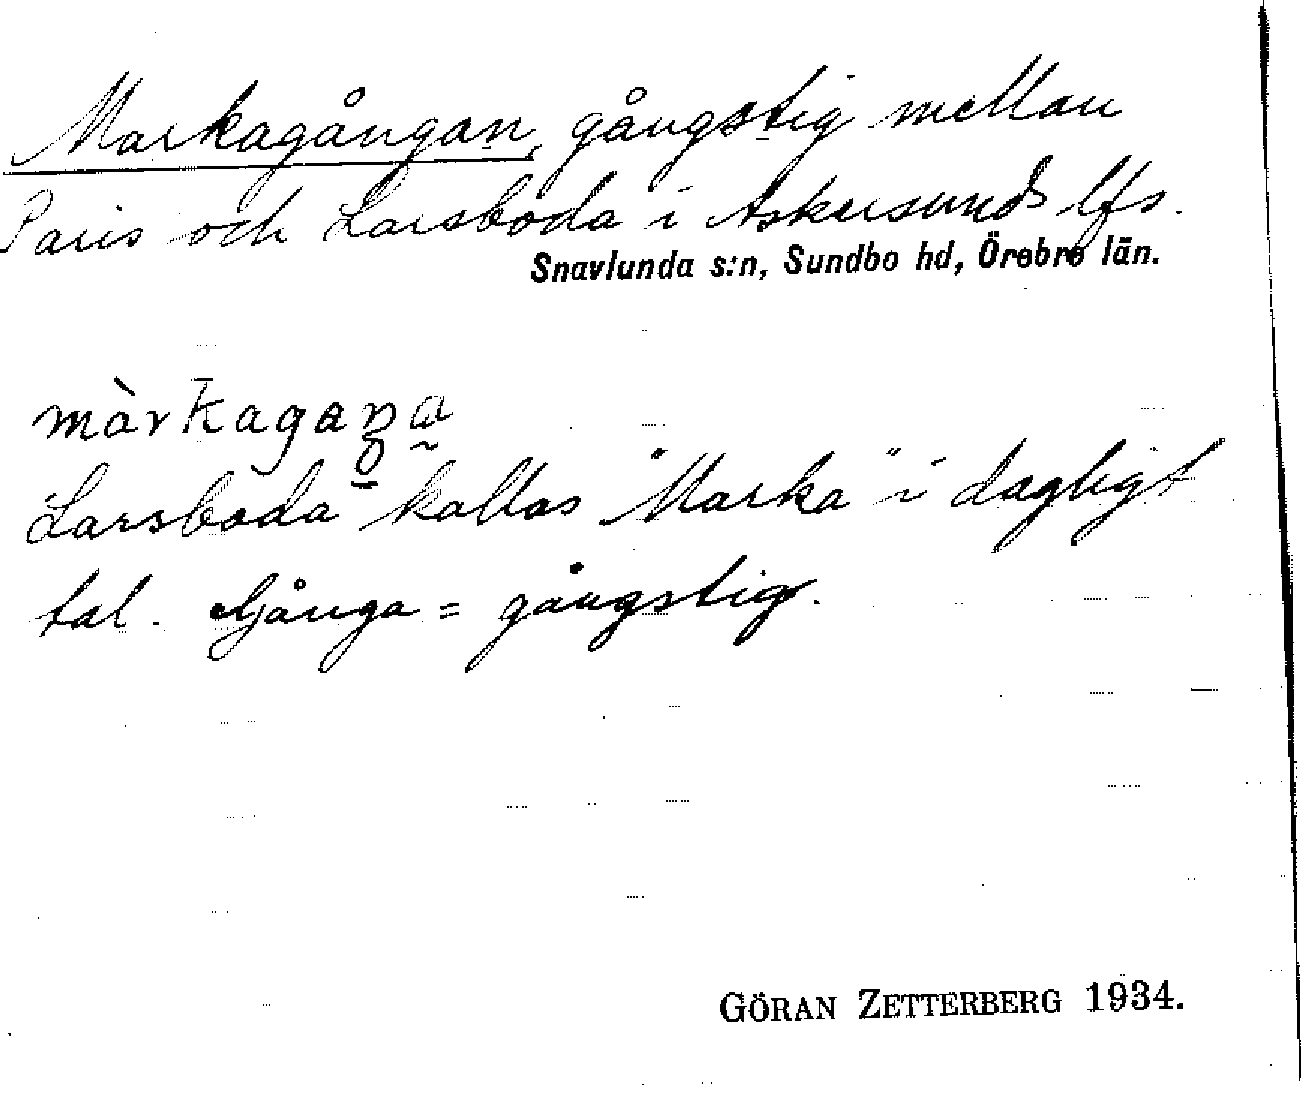 Markagångan, gångstig mellan
Paris och Larsboda i Askersunds lfs.
Snavlunda s:n, Sundbo hd, Örebro län.
Larsboda kallas "Marka" i dagligt
tal. Gånga = gångstig.
GÖRAN ZETTERBERG 1934.